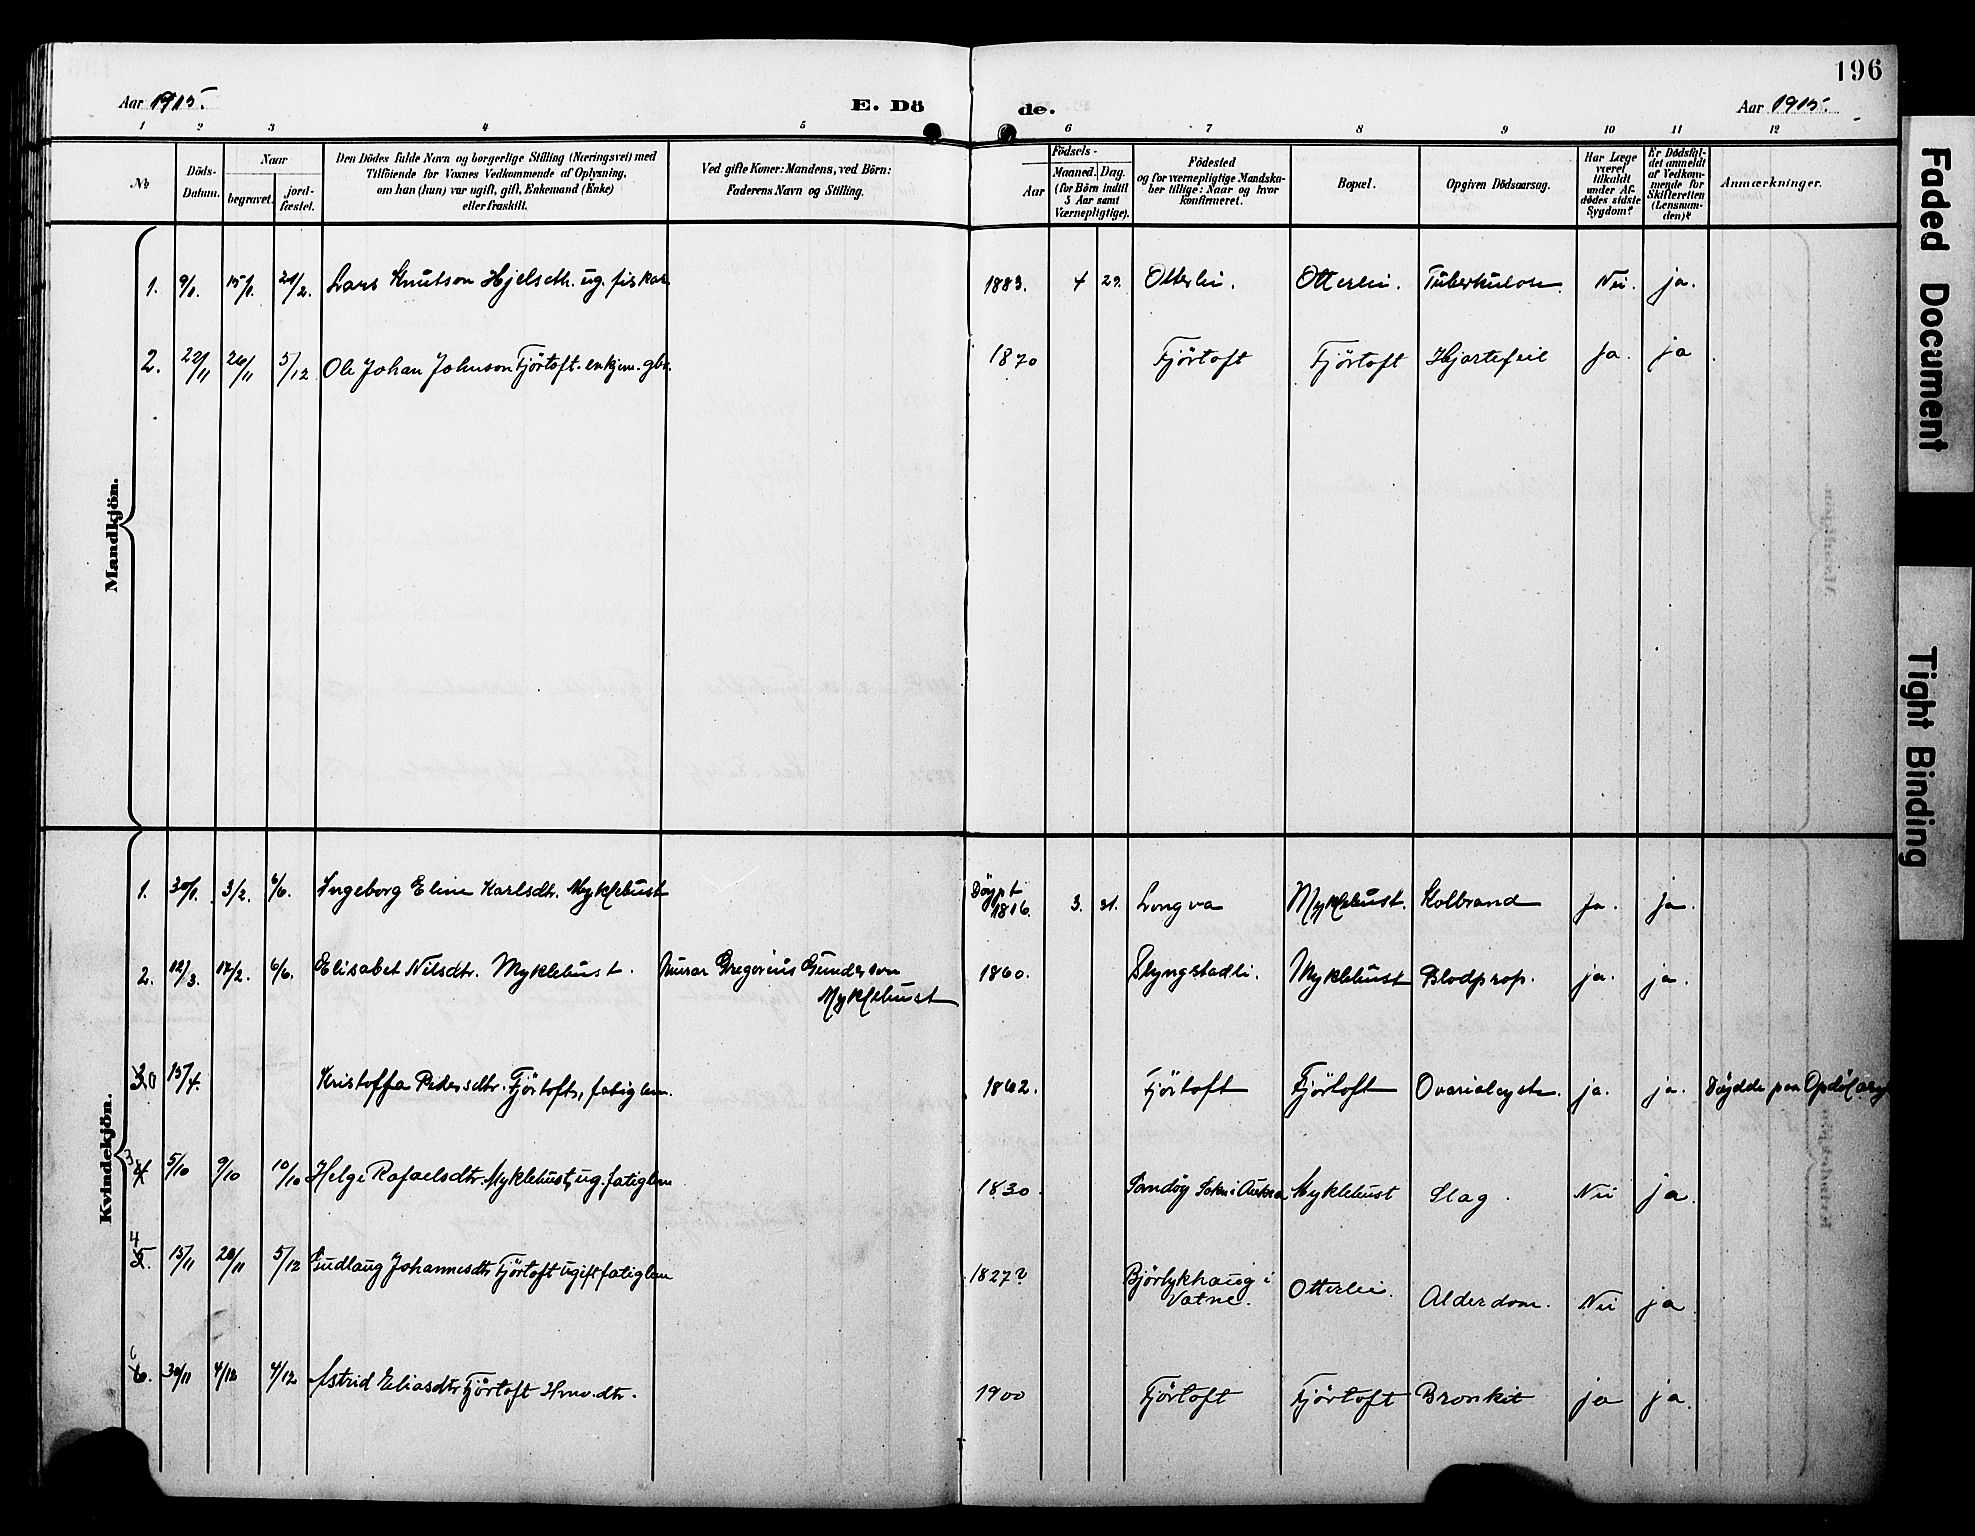 196
Aar 1915.
E. Dö
de.
Aar 1915.
1 2 3 4 5 6 7 8 9 10 11 12
No
Döds-
Datum.
Naar
begravet.
jord-
fæstet.
Den Dödes fulde Navn og borgerlige Stilling (Næringsvei) med
Tilföiende for Voxnes Vedkommende af Oplysning,
om han (hun) var ugift, gift, Enkemand (Enke)
eller fraskilt.
Ved gifte Koner: Mandens, ved Börn:
Faderens Navn og Stilling.
Födsels-
Aar
Maaned. Dag.
(for Börn indtil
5 Aar samt
Værnepligtige).
Födested
og for værnepligtige Mandska-
ber tillige: Naar og hvor
konfirmeret.
Bopæl.
Opgiven Dödsaarsag.
Har Læge
været
tilkaldt
under Af-
dödes sidste
Sygdom?
Er Dödsfal-
det anmeldt
af Vedkom-
mende for
Skifteretten
(Lensman-
den)?
Anmærkninger.
Mandkjön.
1. 9/1. 15/1. 21/2. Lars Knutson Hjelseth. ug. fiskar 1883. 4 29. Otterlei. Otterlei. Tuberkulose Nei. ja.
2. 22/11 26/11 5/12 Ole Johan Johnson Fjörtoft. enkjem. gbr. 1870 Fjörtoft Fjörtoft Hjartefeil Ja. ja
Kvindekjön.
1. 30/1. 3/2. 6/6. Ingeborg Eline Karlsdtr. Myklebust Döypt 1816. 3. 31. Longva Myklebust. Kolbrand Ja. ja.
2. 12/3. 17/2. 6/6. Elisabet Nilsdtr. Myklebust. Gregorius Gunderson
Myklebust
1860. Slyngstadli. Myklebust Blodprop. ja. ja.
30 15/4. Kristoffa Pedersdtr. Fjörtoft, fatiglem. 1862. Fjörtoft Fjörtoft Ovarialcyste. ja. ja. Döydde paa
3 4 5/10 9/10 10/10 Helge Rafaelsdtr. Myklebust, ug. fatiglem 1830. Sandöy Sokn i Aukra Myklebust Slag. Nei ja.
4 5. 15/11 20/11 5/12 Gudlaug Johannesdtr Fjörtoft ugift fatiglem 1827? Björlykhaug i
Vatne.
Otterlei. Alderdom. Nei ja
6. 30/11 4/12 4/12 Astrid Eliasdtr Fjörtoft dtr. 1900 Fjörtoft Fjörtoft Bronkit ja ja.
Faded Document
Tight Binding